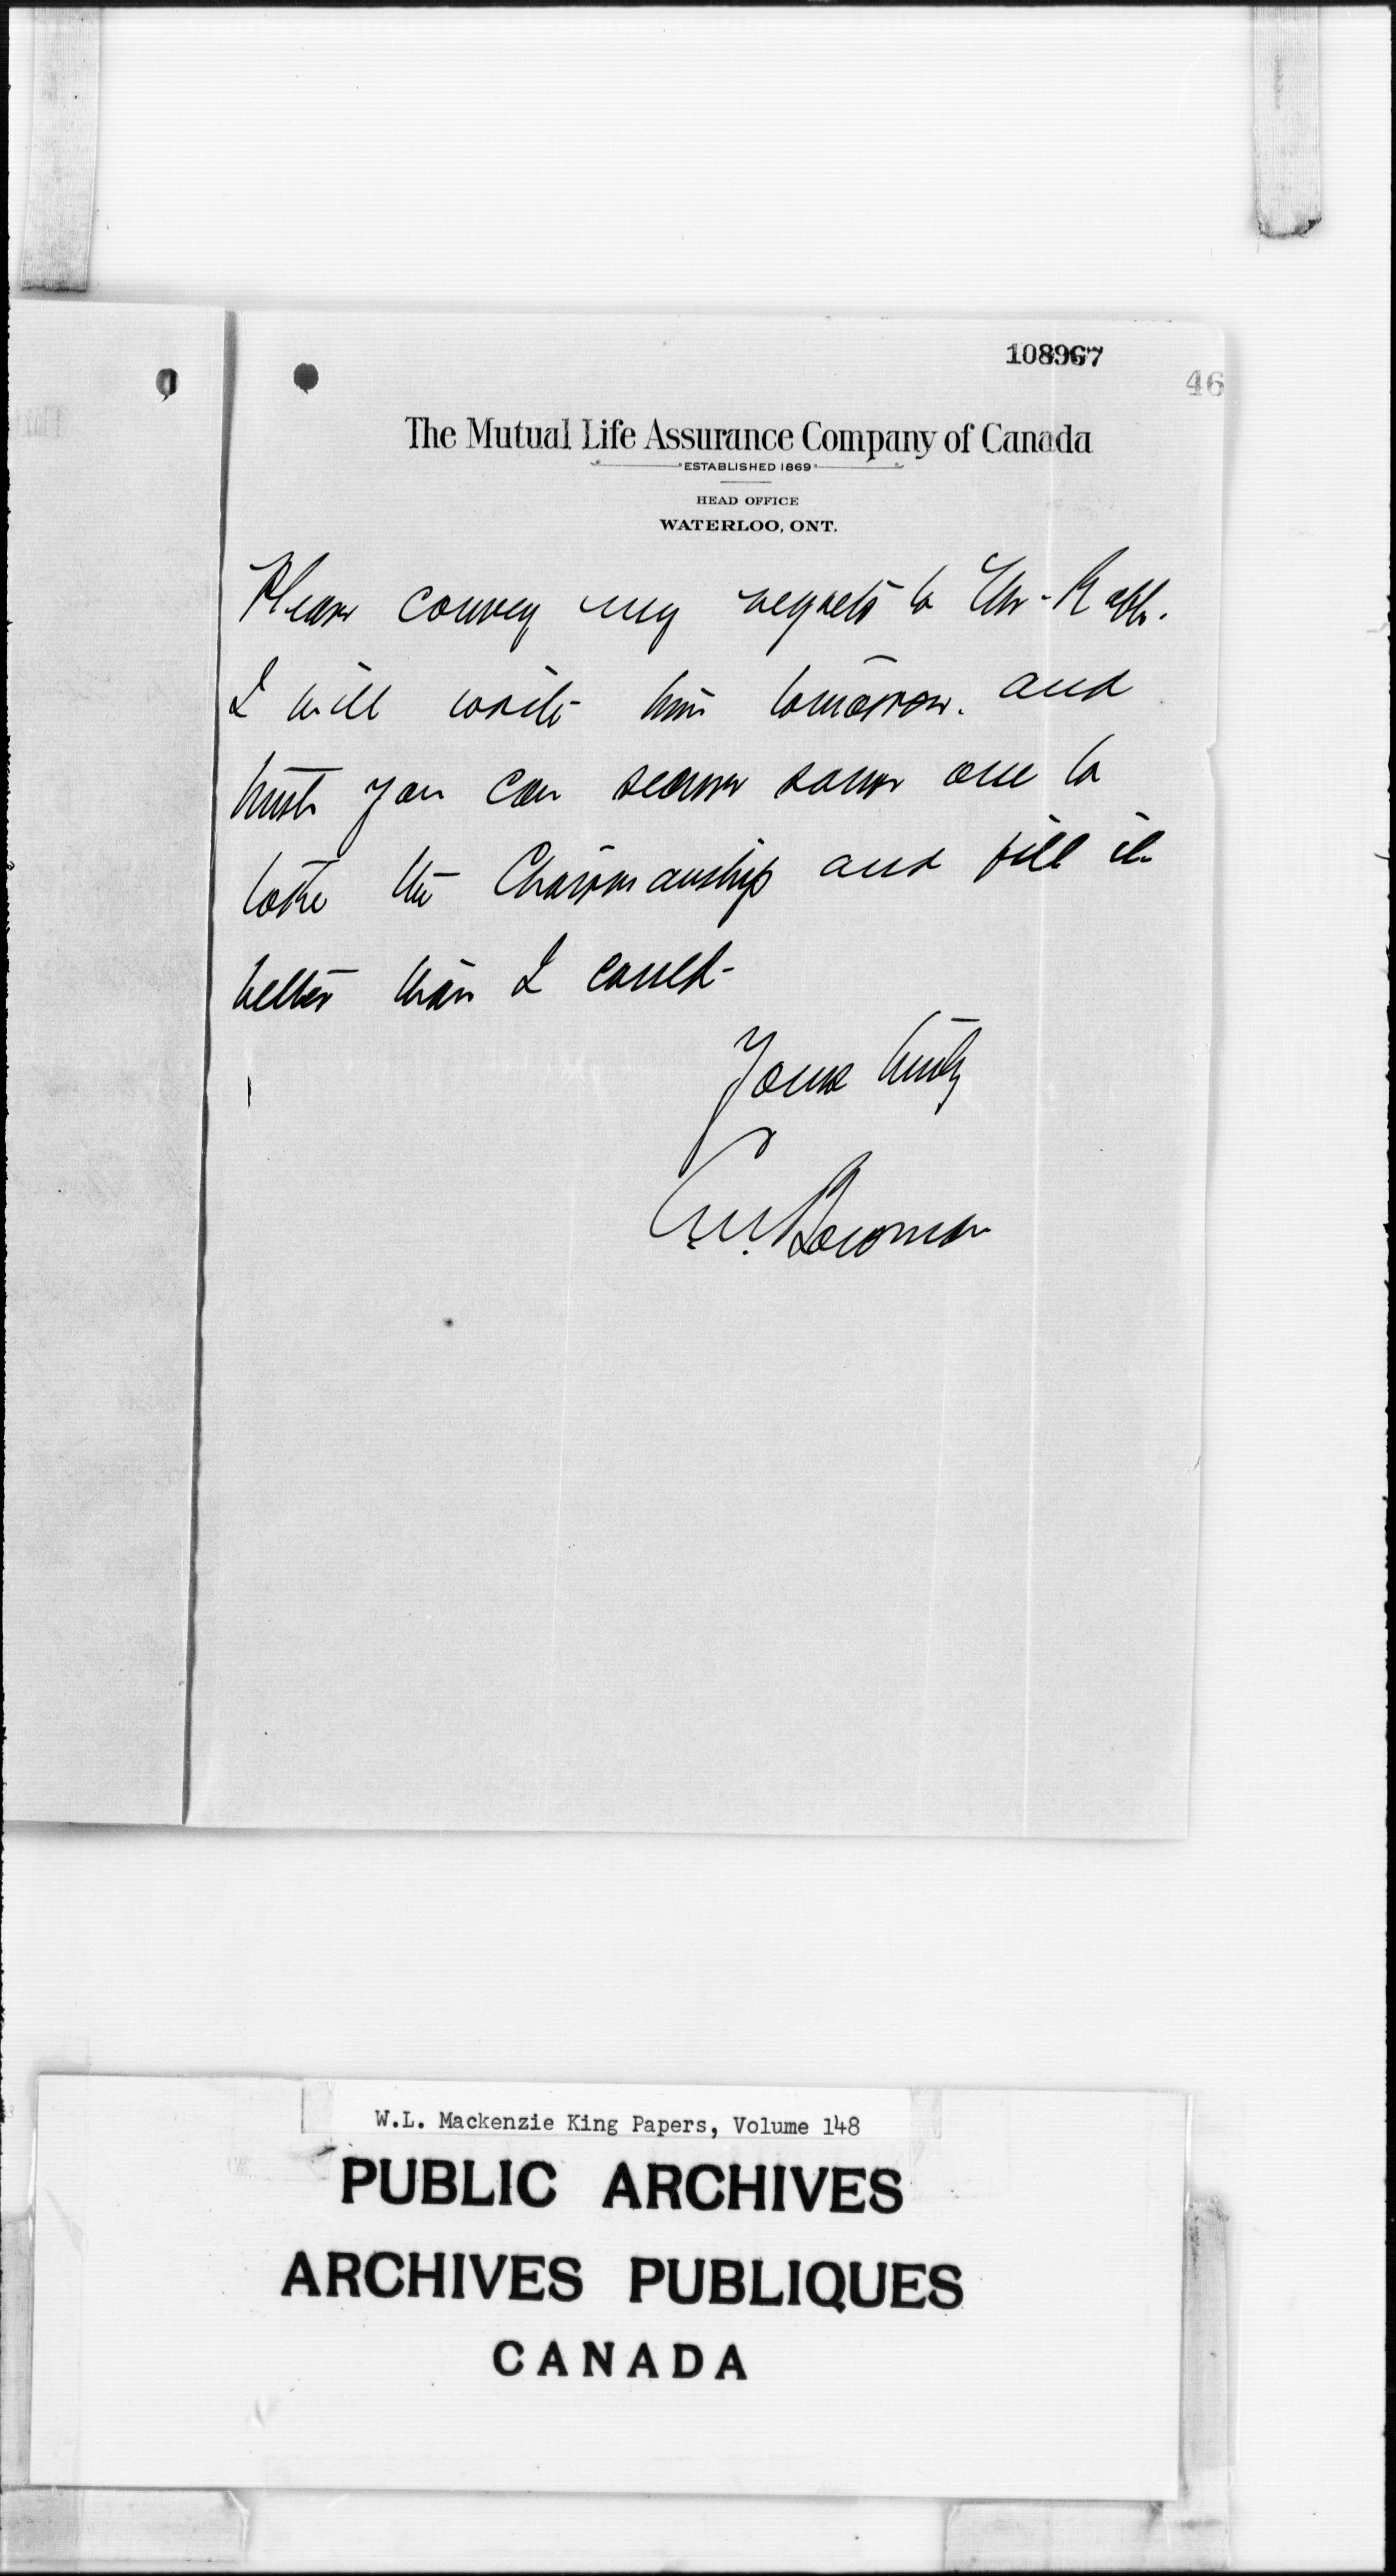 108967
46
The Mutual Life Assurance Company of Canada
ESTABLISHED 1869
HEAD OFFICE
WATERLOO, ONT.
Please convey my regrets to Mr.
I will write him tomorrow. and
trust you can secure some one to
take the Chairmanship and fill it
better than I could -
Yours truly
Bowman
W.L. Mackenzie King Papers, Volume 148
PUBLIC ARCHIVES
ARCHIVES PUBLIQUES
CANADA